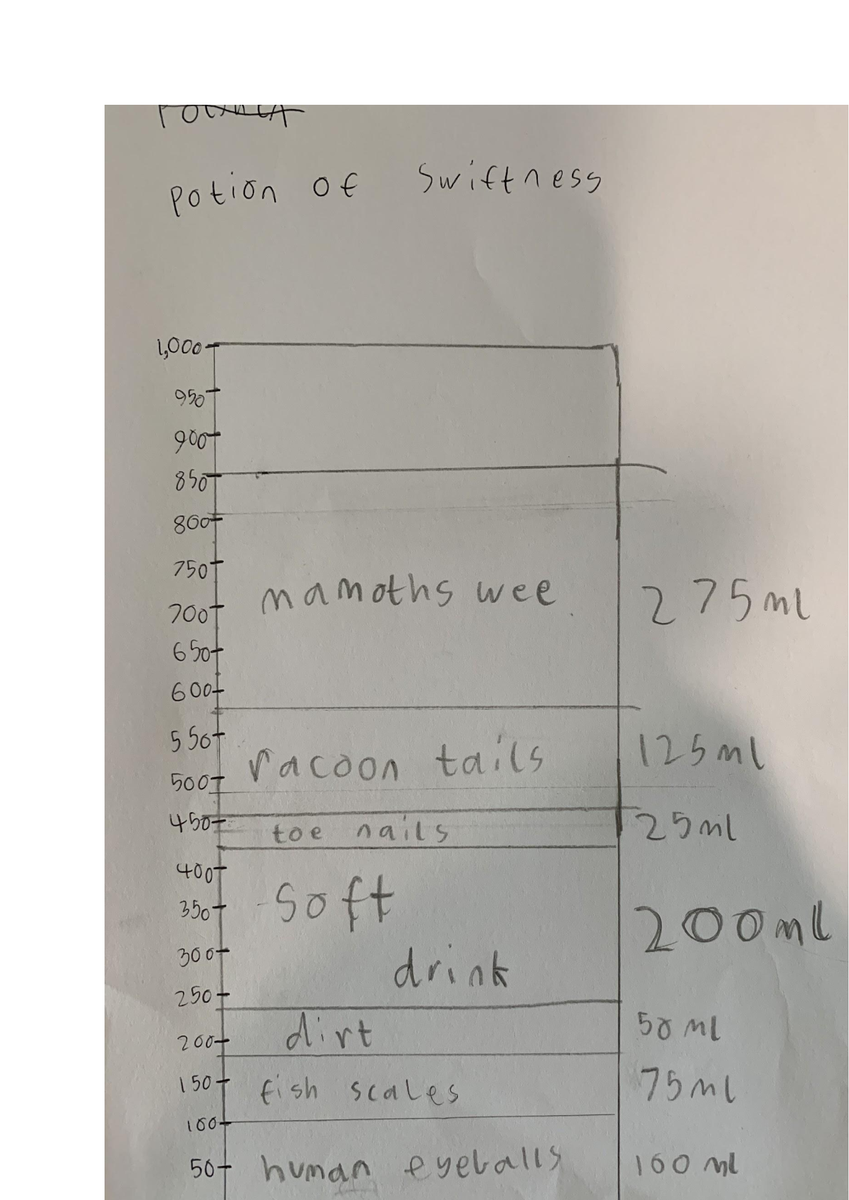 Potion of Swiftness
1,000
950
900
850
800
750
mamoths wee 275ml
700
650
600
550
racoon tails 125ml
500
450
toe nails 25ml
400
soft
350
200ml
300
drink
250
dirt 50 ml
200
150 fish scales 75ml
100
50 human eyeballs 100 ml